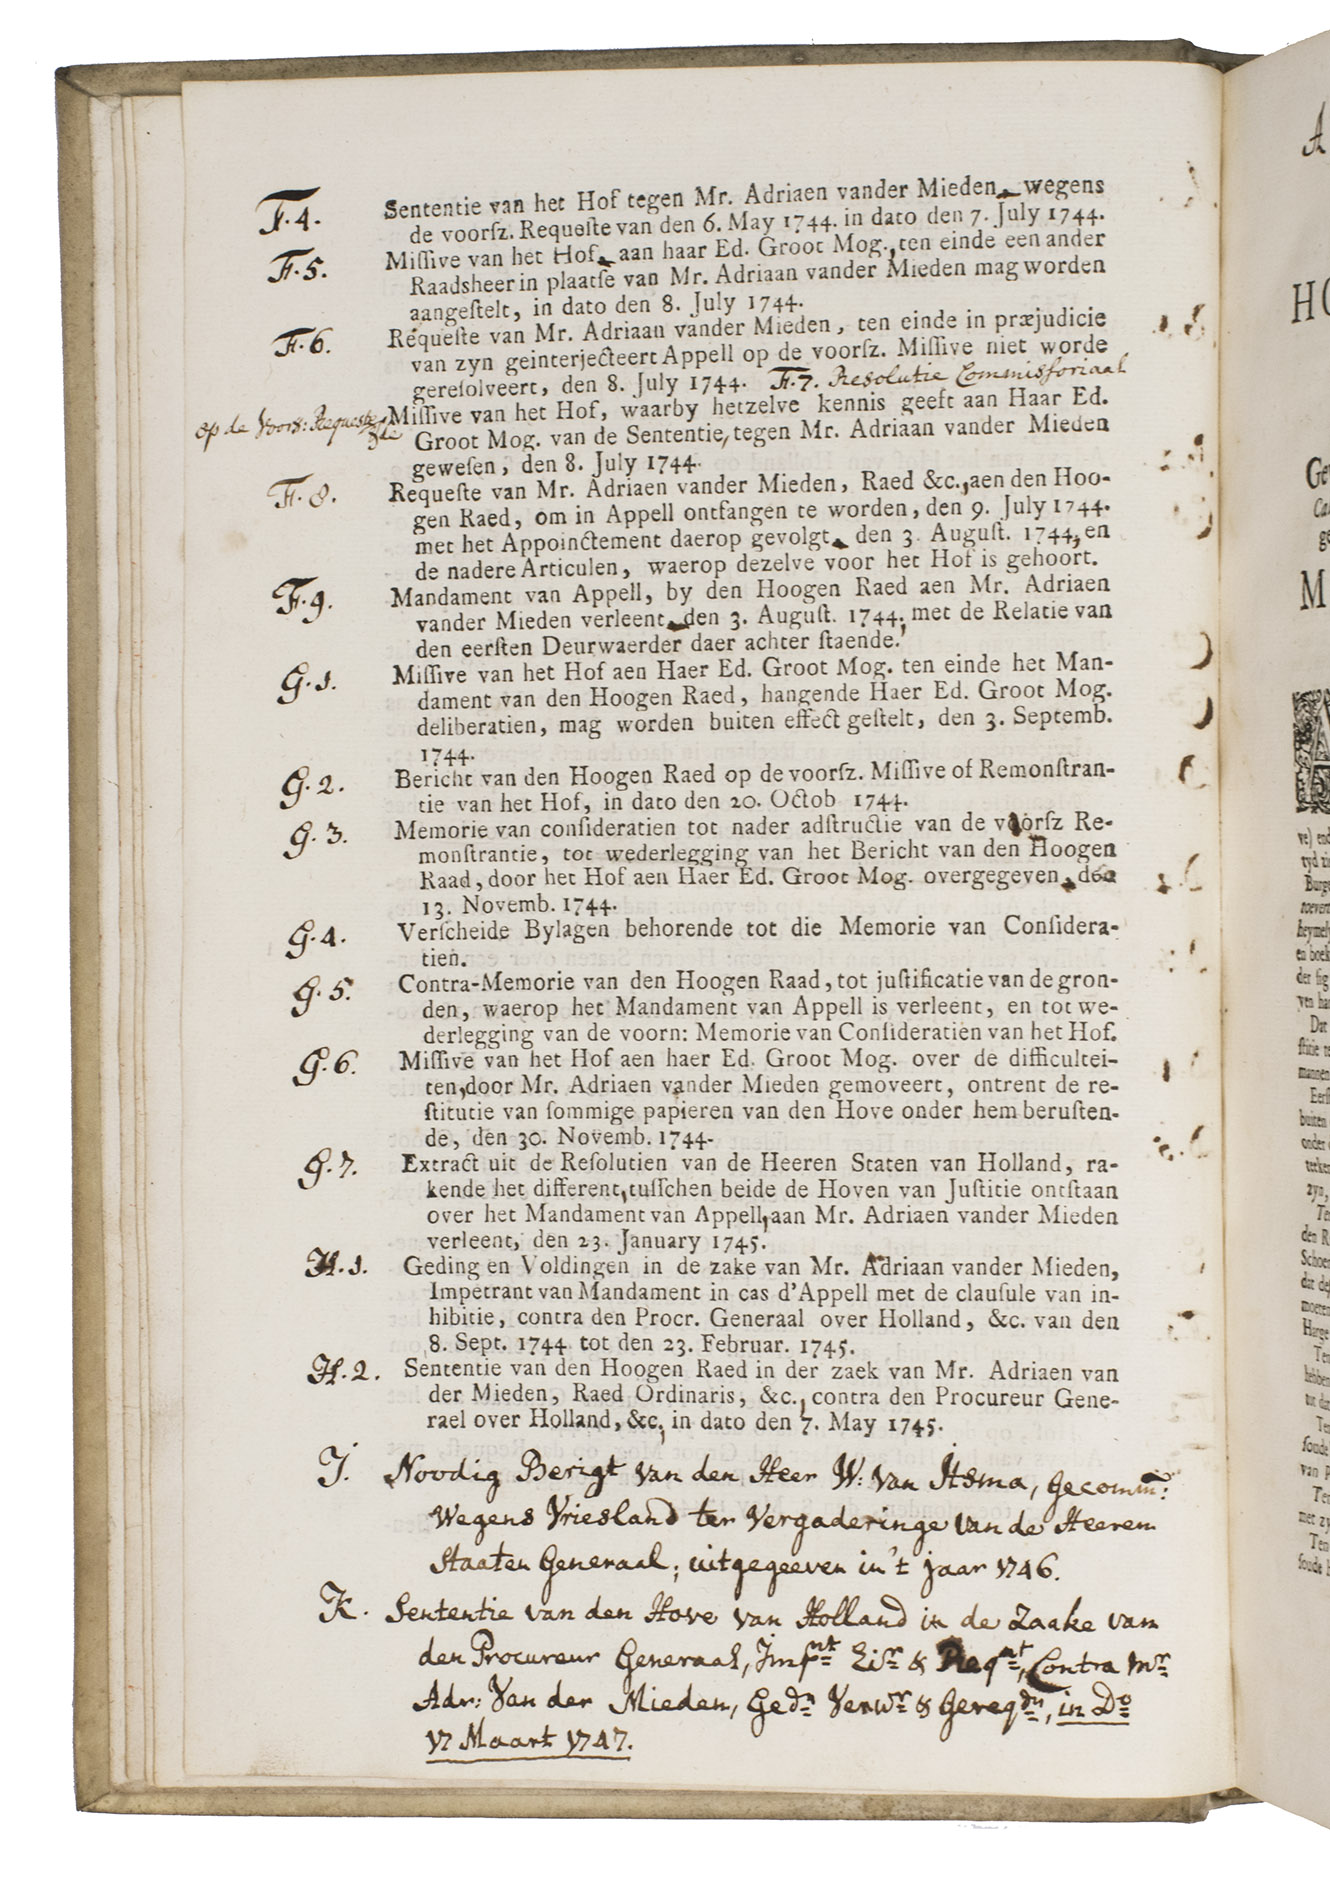 F.4. Sententie van het Hof tegen Mr. Adriaen vander Mieden, wegens
de voorſz. Requeſte van den 6. May 1744. in dato den 7. July 1744.
F.5. Miſſive van het Hof, aan haar Ed. Groot Mog., ten einde een ander
Raadsheer in plaatſe van Mr. Adriaan vander Mieden mag worden
aangeſtelt, in dato den 8. July 1744.
F.6. Requeſte van Mr. Adriaan vander Mieden, ten einde in præjudicie
van zyn geinterjecteert Appell op de voorſz. Miſſive niet worde
gereſolveert, den 8. July 1744. F.7. Resolutie Commisſoriaal
op de Voorsz: Requeste
Miſſive van het Hof, waarby hetzelve kennis geeft aan Haar Ed.
Groot Mog. van de Sententie, tegen Mr. Adriaan vander Mieden
geweſen, den 8. July 1744.
F.8. Requeſte van Mr. Adriaen vander Mieden, Raed &c., aen den Hoo-
gen Raed, om in Appell ontfangen te worden, den 9. July 1744.
met het Appoinctement daerop gevolgt, den 3. Auguſt. 1744, en
de nadere Articulen, waerop dezelve voor het Hof is gehoort.
F.9. Mandament van Appell, by den Hoogen Raed aen Mr. Adriaen
vander Mieden verleent, den 3. Auguſt. 1744, met de Relatie van
den eerſten Deurwaerder daer achter ſtaende.
G.1. Miſſive van het Hof aen Haer Ed. Groot Mog. ten einde het Man-
dament van den Hoogen Raed, hangende Haer Ed. Groot Mog.
deliberatien, mag worden buiten effect geſtelt, den 3. Septemb.
1744.
G.2. Bericht van den Hoogen Raed op de voorſz. Miſſive of Remonſtran-
tie van het Hof, in dato den 20. Octob 1744.
G.3. Memorie van conſideratien tot nader adſtructie van de voorſz Re-
monſtrantie, tot wederlegging van het Bericht van den Hoogen
Raad, door het Hof aen Haer Ed. Groot Mog. overgegeven, den
13. Novemb. 1744.
G.4. Verſcheide Bylagen behorende tot die Memorie van Conſidera-
tien.
G.5. Contra-Memorie van den Hoogen Raad, tot juſtificatie van de gron-
den, waerop het Mandament van Appell is verleent, en tot we-
derlegging van de voorn: Memorie van Conſideratien van het Hof.
G.6. Miſſive van het Hof aen haer Ed. Groot Mog. over de difficultei-
ten, door Mr. Adriaen vander Mieden gemoveert, ontrent de re-
ſtitutie van ſommige papieren van den Hove onder hem beruſten-
de, den 30. Novemb. 1744.
G.7. Extract uit de Reſolutien van de Heeren Staten van Holland, ra-
kende het different, tuſſchen beide de Hoven van Juſtitie ontſtaan
over het Mandament van Appell, aan Mr. Adriaen vander Mieden
verleent, den 23. January 1745.
H.1. Geding en Voldingen in de zake van Mr. Adriaan vander Mieden,
Impetrant van Mandament in cas d'Appell met de clauſule van in-
hibitie, contra den Procr. Generaal over Holland, &c. van den
8. Sept. 1744 tot den 23. Februar. 1745.
H.2. Sententie van den Hoogen Raed in der zaek van Mr. Adriaen van
der Mieden, Raed Ordinaris, &c., contra den Procureur Gene-
rael over Holland, &c, in dato den 7. May 1745.
J. Noodig Berigt van den Heer W: van Itsma, Gecomm:
Wegens Vriesland ter Vergaderinge van de Heeren
Staaten Generaal; uitgegeeven in't jaar 1746.
K. Sententie van den Hove van Holland in de Zaake van
den Procureur Generaal, Imp.nt Eis.r & Req.nt, Contra M.r
Adr: Van der Mieden, Ged.n Verw.r & Gereq.dn, in D.o
17 Maart 1747.